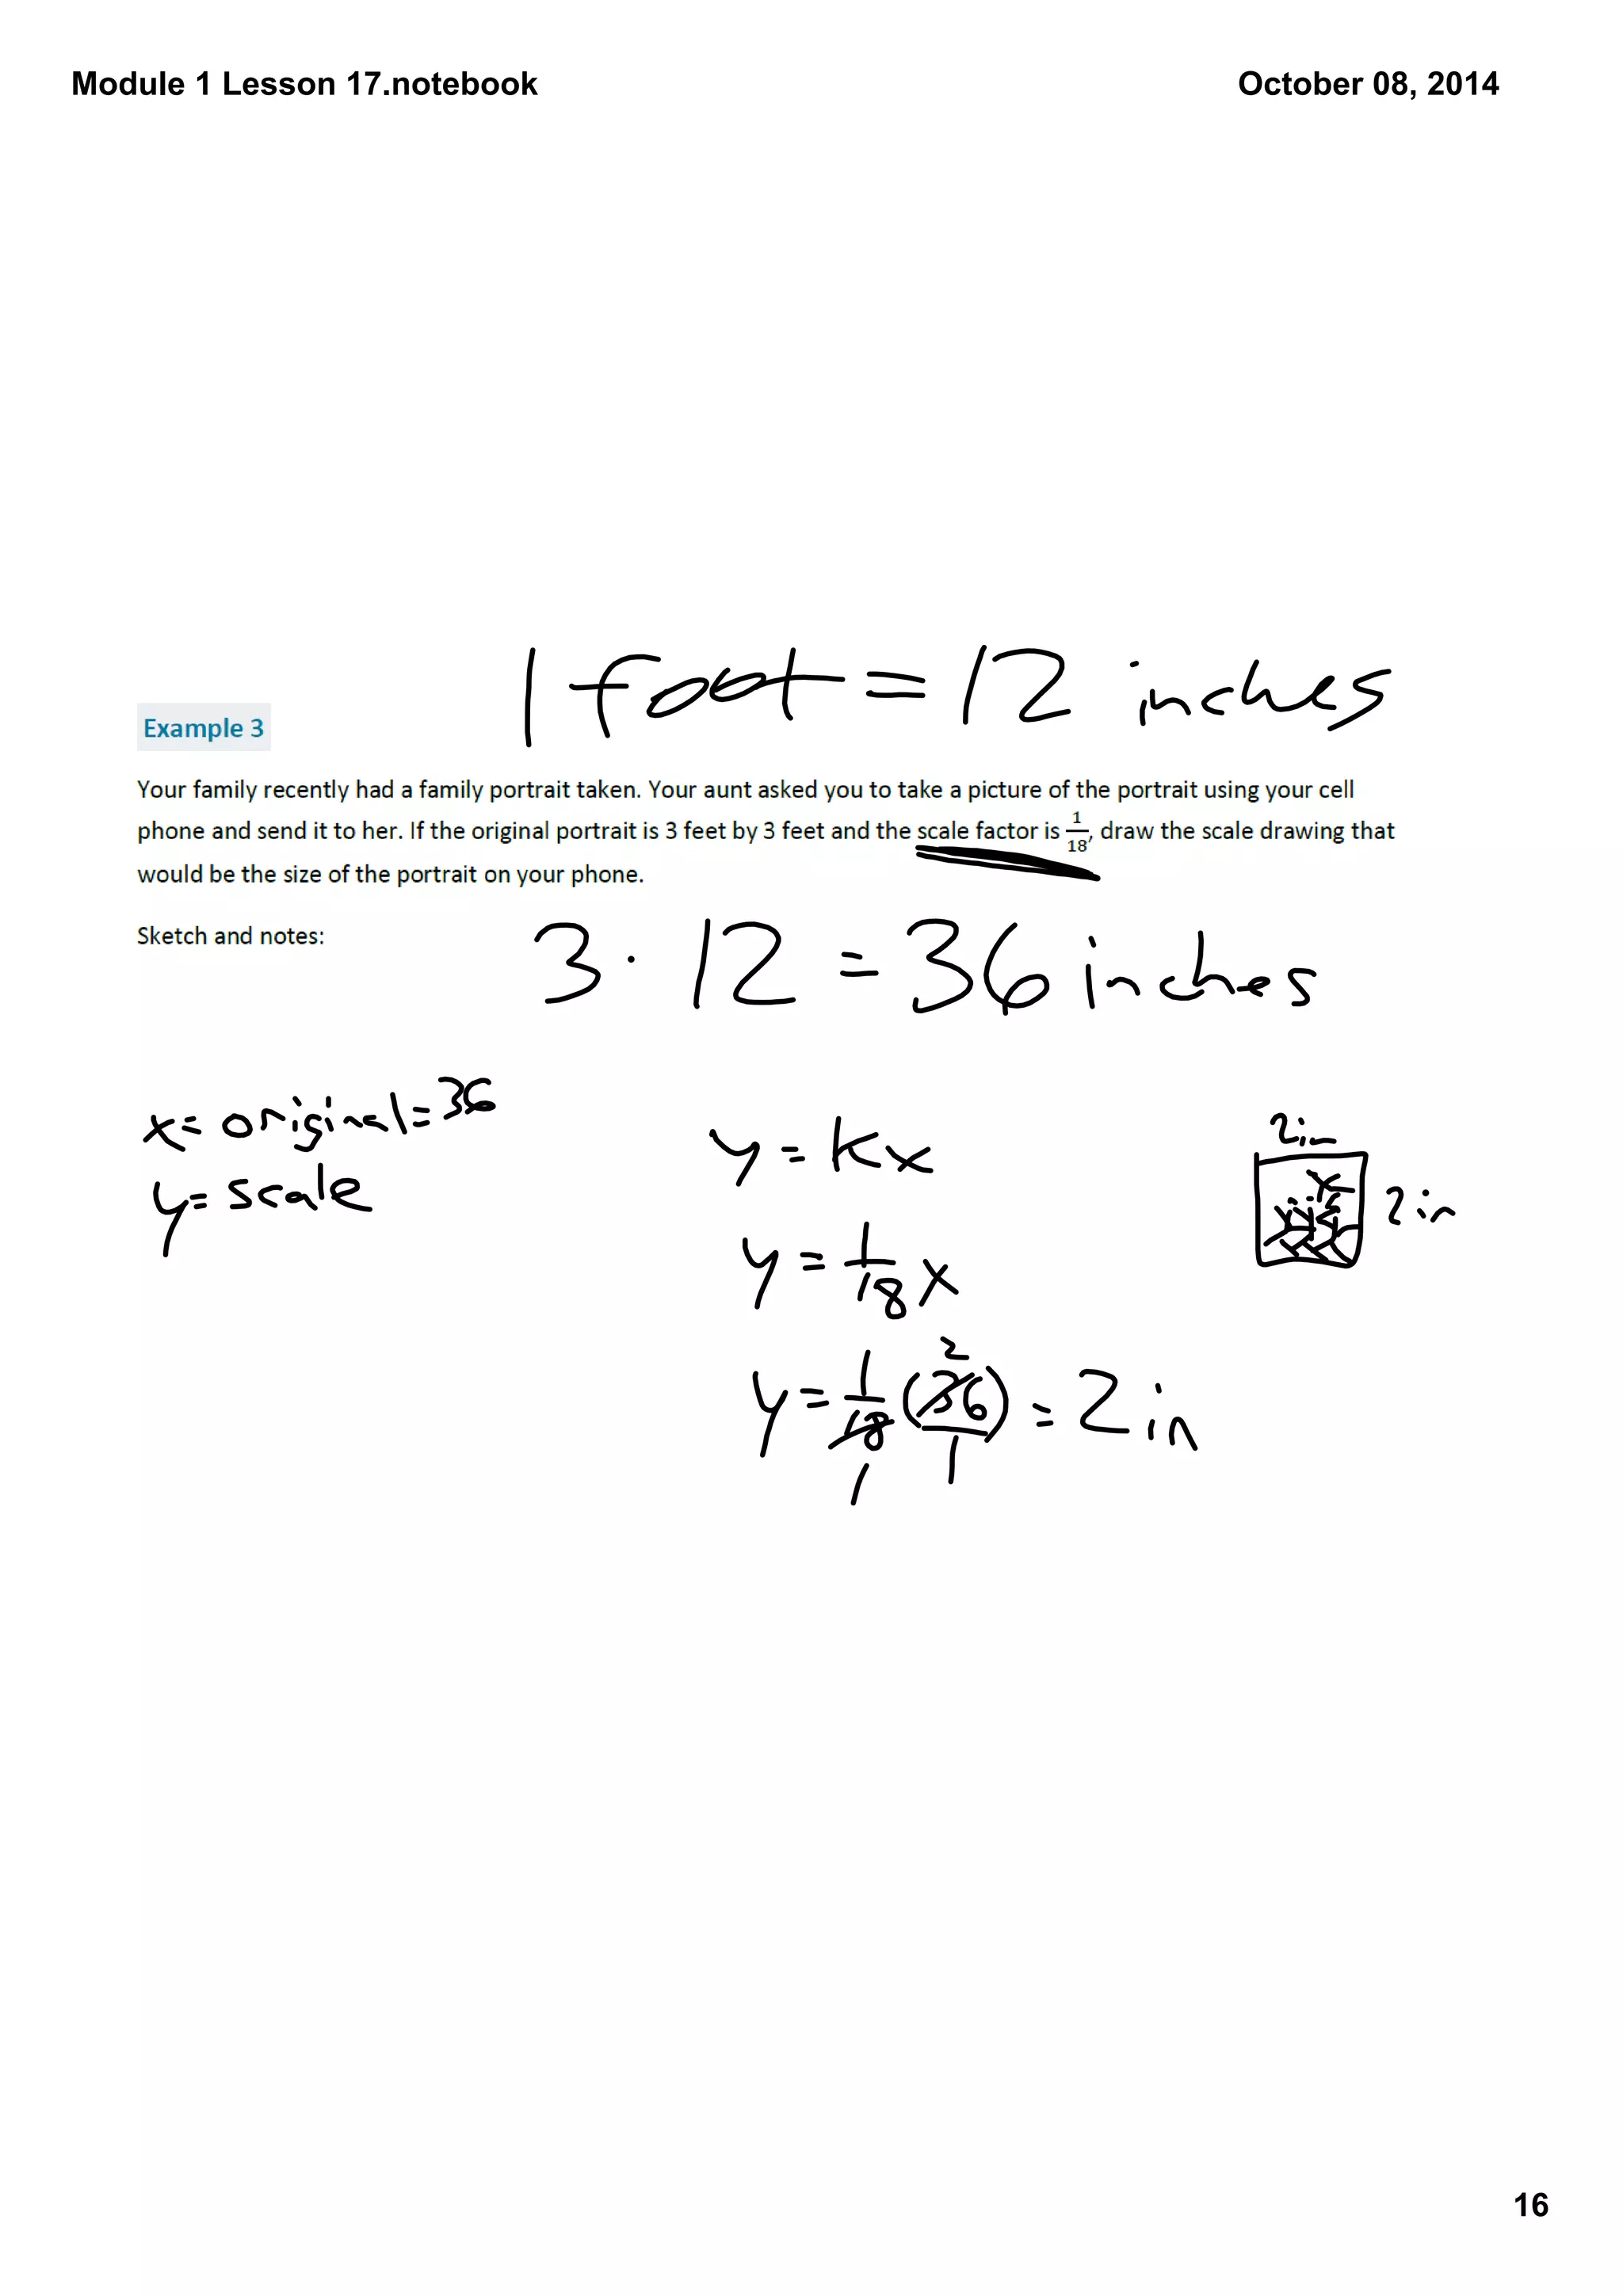 Module 1 Lesson 17.notebook
October 08, 2014
1 foot = 12 inches
Example 3
Your family recently had a family portrait taken. Your aunt asked you to take a picture of the portrait using your cell
phone and send it to her. If the original portrait is 3 feet by 3 feet and the scale factor is 1/18, draw the scale drawing that
would be the size of the portrait on your phone.
Sketch and notes:
3 · 12 = 36 inches
x = original = 36
y = scale
y = kx
y = 1/18 x
y = 1/18 (36/1) = 2 in
2
1
2in
2in
16